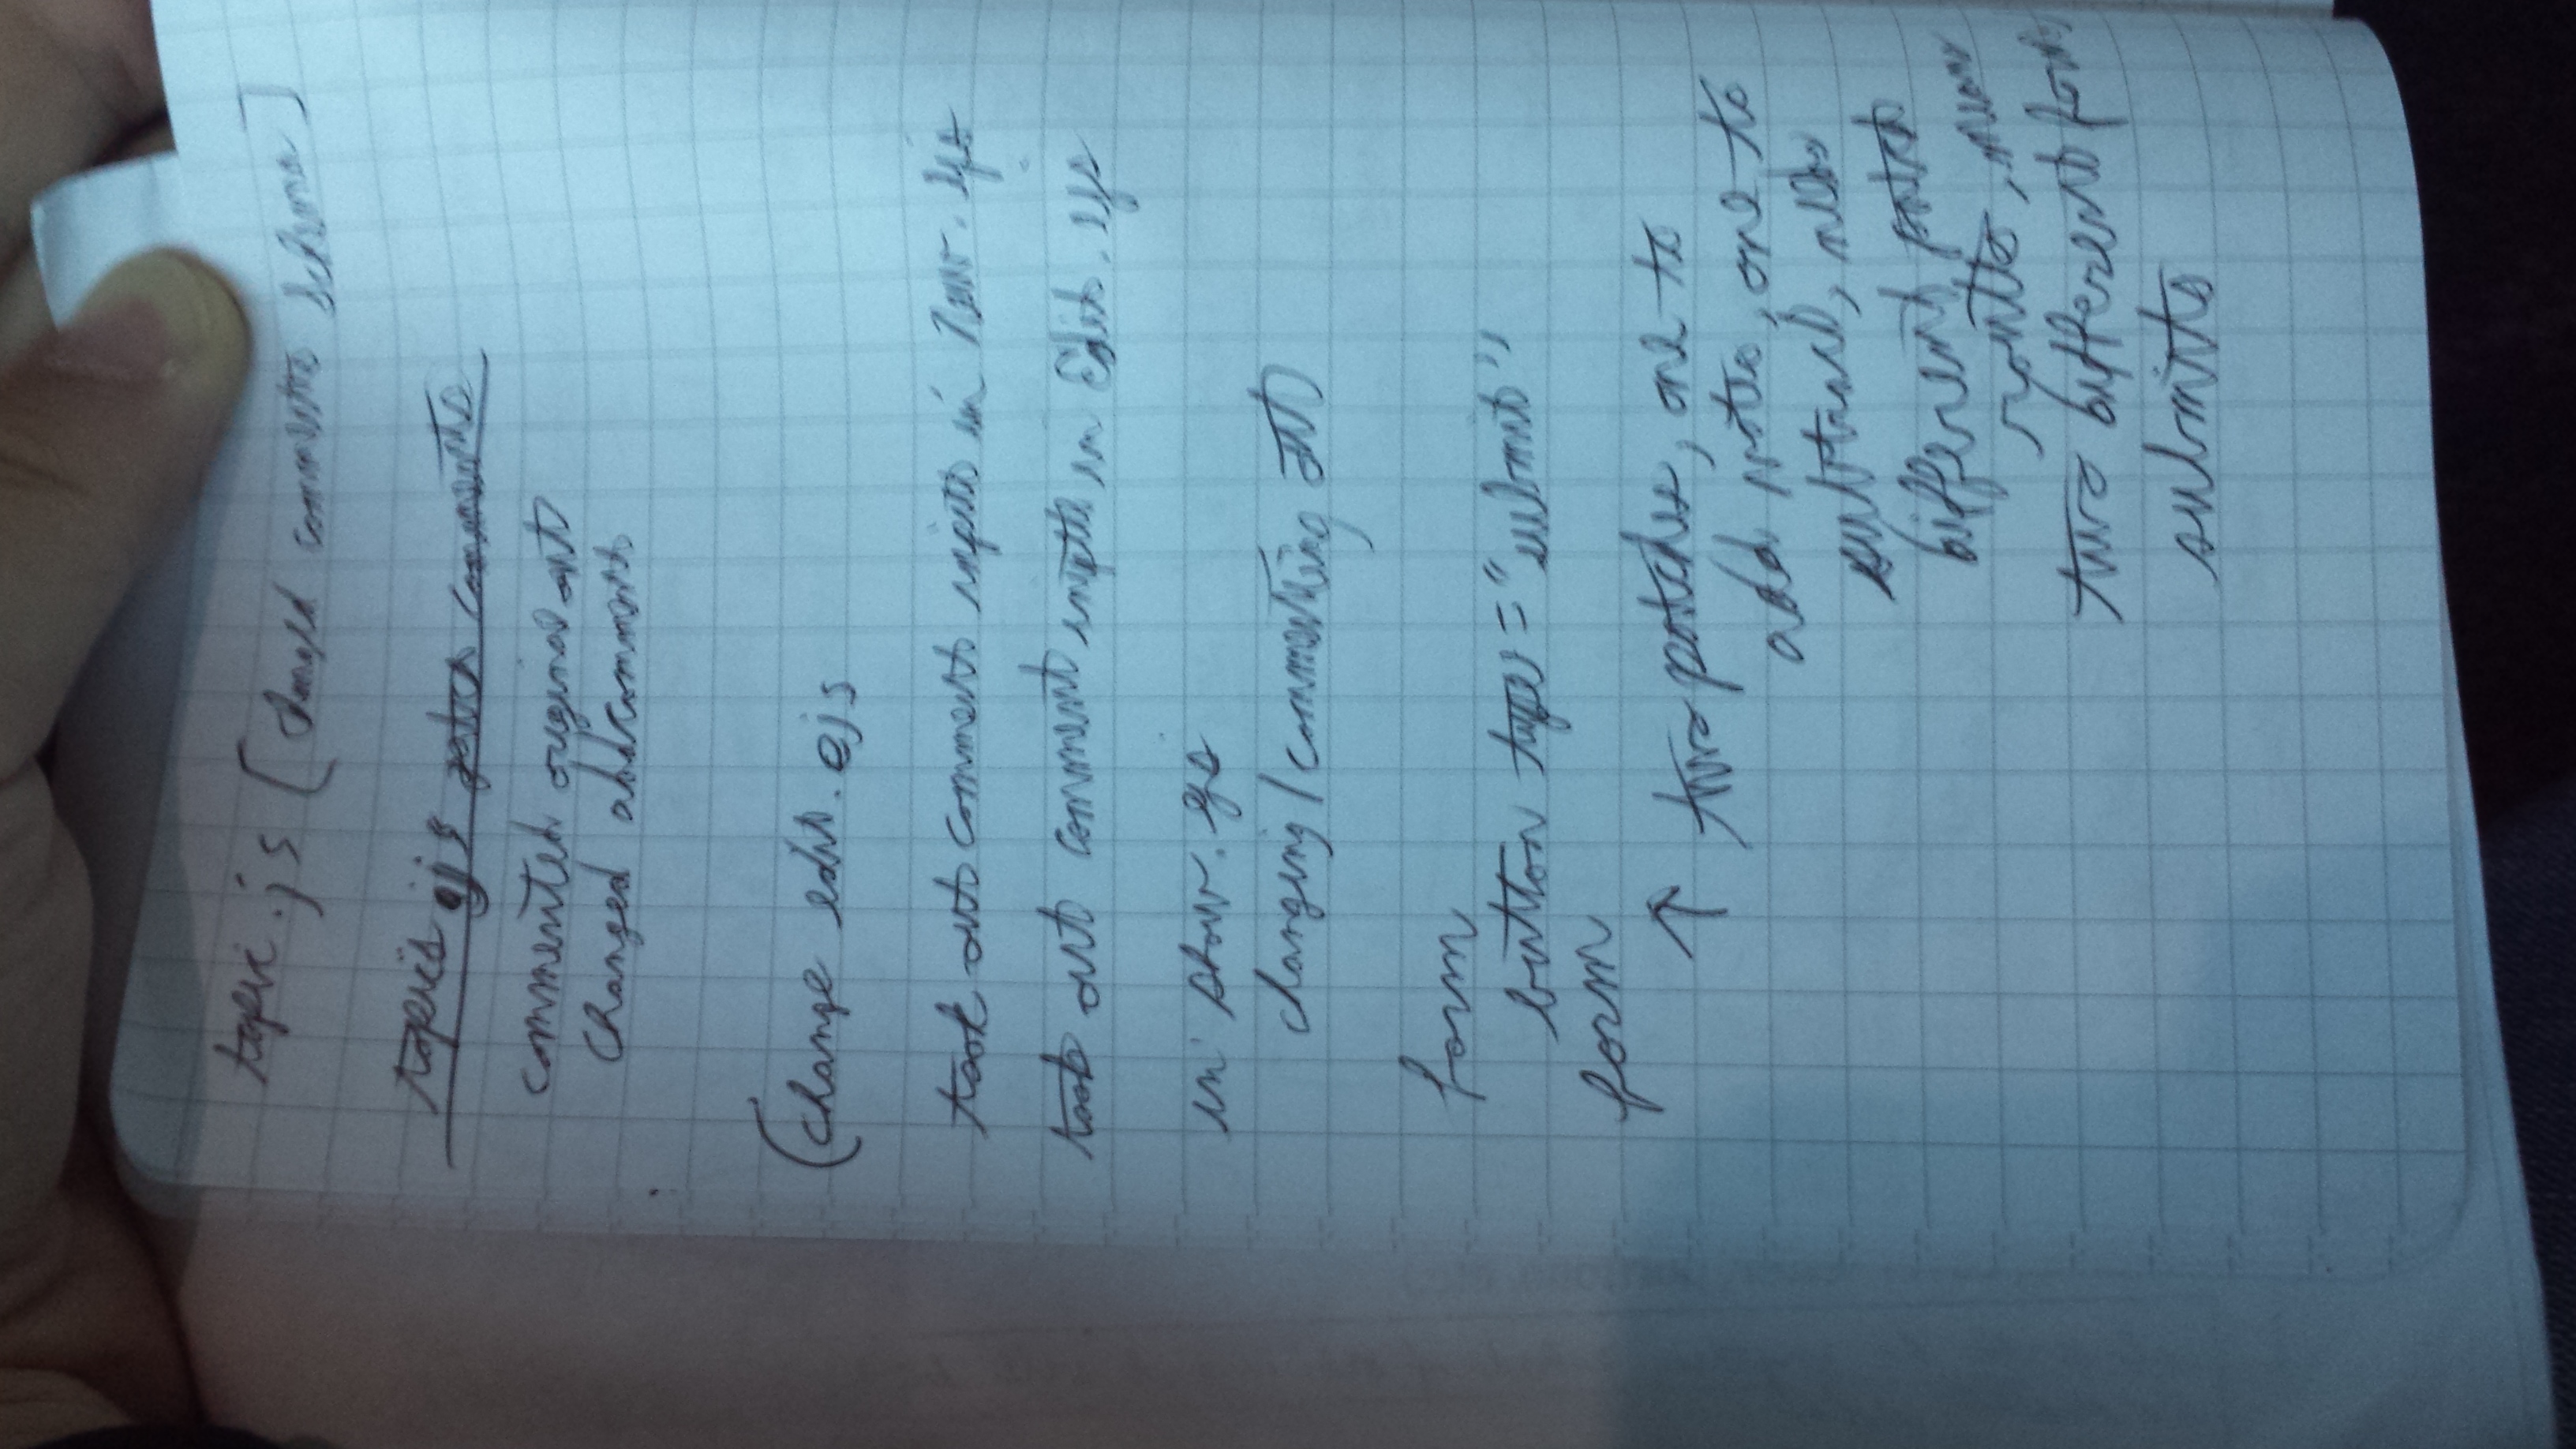 topic.js [changed comments schema]
topics.js patch comments
commented original out
changed addcomment
(change edit.ejs
took out comment inputs in new.ejs
took out comment inputs in Edit.ejs
in show.ejs
changing/commenting out
form
button type="submit"
form
↑ two patches, one to
add notes, one to
subtract, needs
different patch
routes, means
two different form
submits